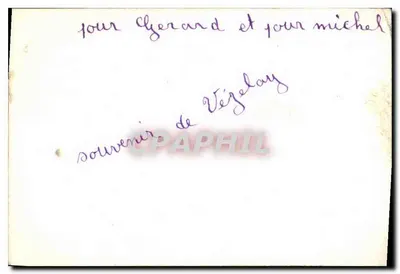 pour Gérard et pour michel
souvenir de Vézelay
CPAPHIL